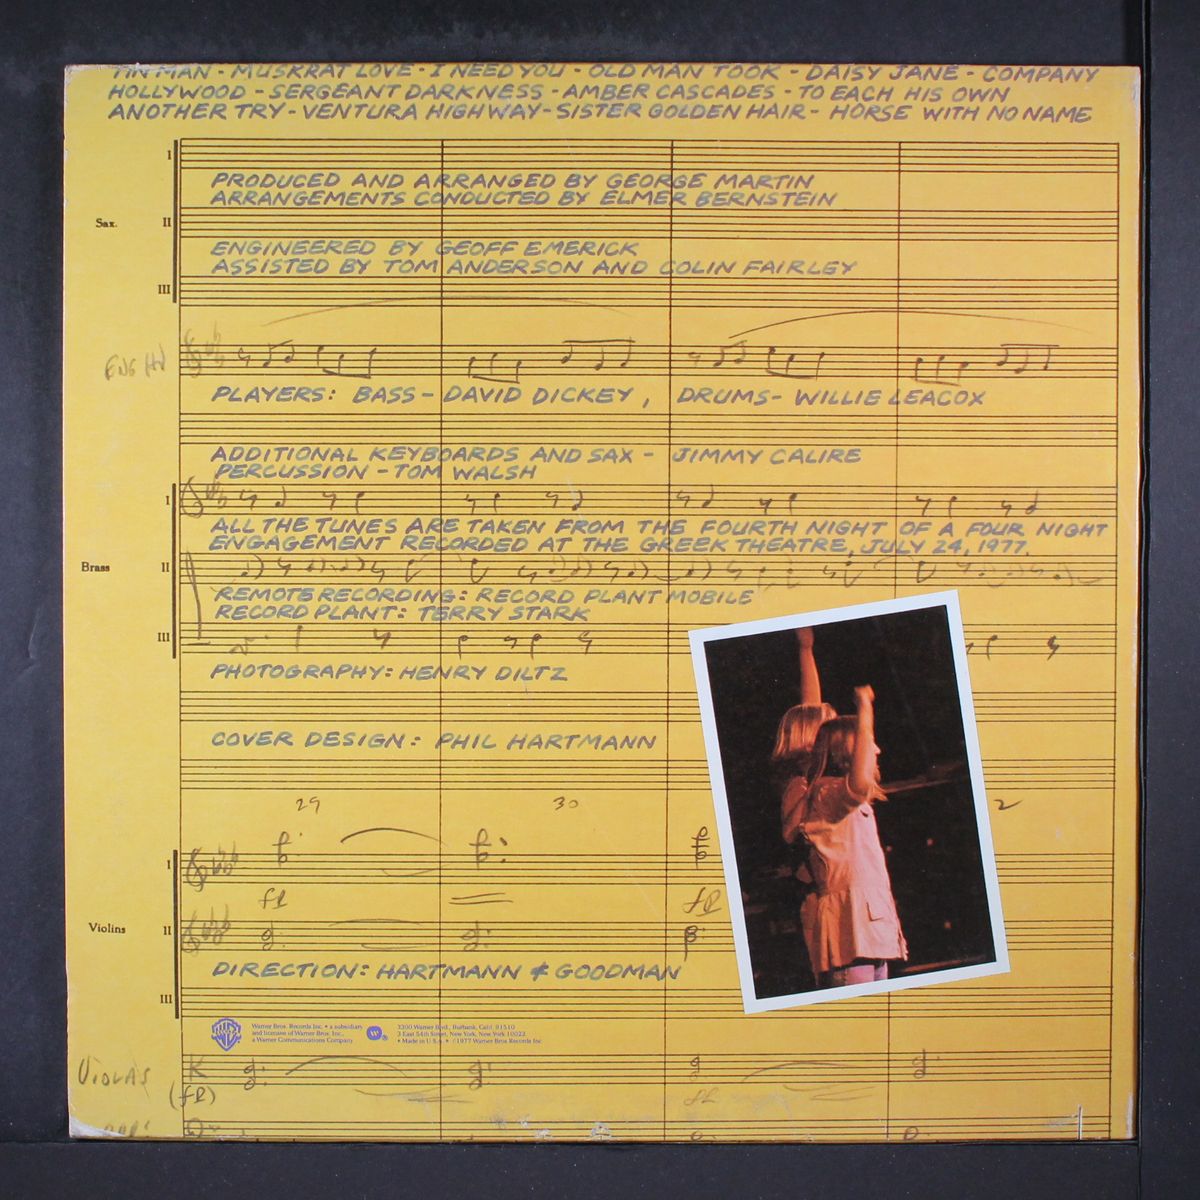 TIN MAN - MUSKRAT LOVE - I NEED YOU - OLD MAN TOOK - DAISY JANE - COMPANY
HOLLYWOOD - SERGEANT DARKNESS - AMBER CASCADES - TO EACH HIS OWN
ANOTHER TRY - VENTURA HIGHWAY - SISTER GOLDEN HAIR - HORSE WITH NO NAME
I
PRODUCED AND ARRANGED BY GEORGE MARTIN
ARRANGEMENTS CONDUCTED BY ELMER BERNSTEIN
Sax. II
ENGINEERED BY GEOFF EMERICK
ASSISTED BY TOM ANDERSON AND COLIN FAIRLEY
III
ENG HN
PLAYERS: BASS - DAVID DICKEY, DRUMS - WILLIE LEACOX
ADDITIONAL KEYBOARDS AND SAX - JIMMY CALIRE
PERCUSSION - TOM WALSH
I
ALL THE TUNES ARE TAKEN FROM THE FOURTH NIGHT OF A FOUR NIGHT
ENGAGEMENT RECORDED AT THE GREEK THEATRE, JULY 24, 1977.
Brass II
REMOTE RECORDING: RECORD PLANT MOBILE
RECORD PLANT: TERRY STARK
III
PHOTOGRAPHY: HENRY DILTZ
COVER DESIGN: PHIL HARTMANN
29 30 2
I
Violins II
DIRECTION: HARTMANN & GOODMAN
III
Warner Bros. Records Inc. • a subsidiary
and licensee of Warner Bros. Inc.,
a Warner Communications Company
3300 Warner Blvd., Burbank, Calif. 91510
3 East 54th Street, New York, New York 10022
• Made in U.S.A. • ©1977 Warner Bros Records Inc
VIOLAS